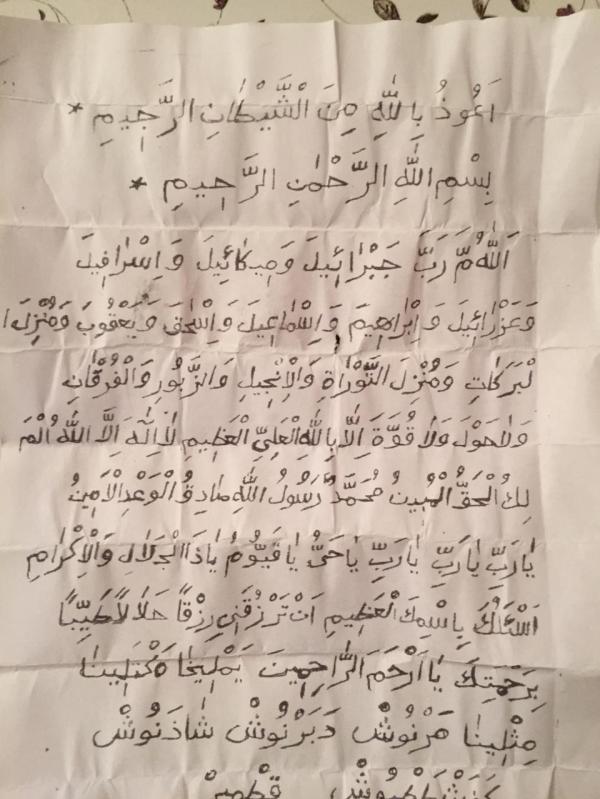 اَعُوذُ بِاللّٰهِ مِنَ الْشَّيْطَانِ الرَّجِيمِ *
بِسْمِ اللّٰهِ الرَّحْمٰنِ الرَّحِيمِ *
اَللّٰهُمَّ رَبَّ جَبْرَائِيلَ وَمِيكَائِيلَ وَاِسْرَافِيلَ
وَعَزْرَائِيلَ وَاِبْرَاهِيمَ وَاِسْمَاعِيلَ وَاِسْحٰقَ وَيَعْقُوبَ وَمُنْزِلَ ا
لْبَرَكَاتِ وَمُنْزِلَ التَّوْرَاةِ وَالْاِنْجِيلِ وَالزَّبُورِ وَالْفُرْقَانِ
وَلَاحَوْلَ وَلَا قُوَّةَ اِلَّا بِاللّٰهِ الْعَلِيِّ الْعَظِيمِ لَا اِلٰهَ اِلَّا اللّٰهُ الْمَ
لِكُ الْحَقُّ الْمُبِينُ مُحَمَّدٌ رَسُولُ اللّٰهِ صَادِقُ الْوَعْدِ الْاَمِينُ
يَارَبِّ يَارَبِّ يَارَبِّ يَاحَيُّ يَاقَيُّومُ يَاذَا الْجَلَالِ وَالْاِكْرَامِ
اَسْئَلُكَ بِاسْمِكَ الْعَظِيمِ اَنْ تَرْزُقَنِي رِزْقًا حَلَالًا طَيِّبًا
بِرَحْمَتِكَ يَا اَرْحَمَ الرَّاحِمِينَ يَمْلِيخَا مَكْثَلِينَا
مِثْلِينَا مَرْنُوشْ دَبَرْنُوشْ شَاذَنُوشْ
كَفَشْطَطْيُوشْ قِطْمِيرْ